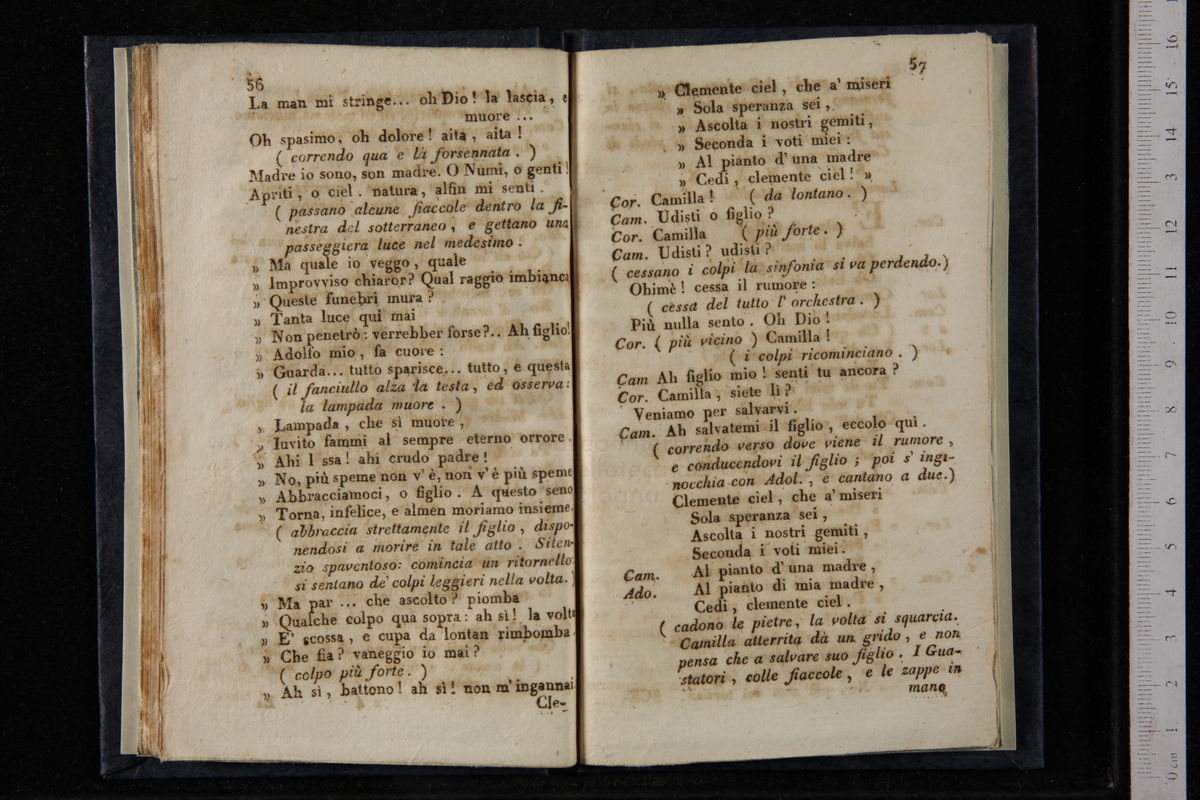 56
La man mi stringe... oh Dio! la lascia, e
muore ...
Oh spasimo, oh dolore! aita, aita!
( correndo qua e là forsennata. )
Madre io sono, son madre. O Numi, o genti!
Apriti, o ciel. natura, alfin mi senti.
( passano alcune fiaccole dentro la fi-
nestra del sotterraneo, e gettano una
passeggiera luce nel medesimo.
„ Ma quale io veggo, quale
„ Improvviso chiaror? Qual raggio imbianca
„ Queste funebri mura?
„ Tanta luce qui mai
„ Non penetrò: verrebber forse?.. Ah figlio!
„ Adolfo mio, fa cuore:
„ Guarda... tutto sparisce... tutto, e questa
( il fanciullo alza la testa, ed osserva:
la lampada muore. )
„ Lampada, che sì muore,
„ Iuvito fammi al sempre eterno orrore.
„ Ahi l ssa! ahi crudo padre!
„ No, più speme non v'è, non v'è più speme
„ Abbracciamoci, o figlio. A questo seno
„ Torna, infelice, e almen moriamo insieme.
( abbraccia strettamente il figlio, dispo-
nendosi a morire in tale atto. Silen-
zio spaventoso: comincia un ritornello:
si sentano de' colpi leggieri nella volta. )
„ Ma par ... che ascolto? piomba
„ Qualche colpo qua sopra: ah sì! la volta
„ E' scossa, e cupa da lontan rimbomba.
„ Che fia? vaneggio io mai?
( colpo più forte. )
„ Ah sì, battono! ah sì! non m'ingannai
Cle-
57
„ Clemente ciel, che a' miseri
„ Sola speranza sei,
„ Ascolta i nostri gemiti,
„ Seconda i voti miei:
„ Al pianto d'una madre
„ Cedi, clemente ciel! „
Cor. Camilla! ( da lontano. )
Cam. Udisti o figlio?
Cor. Camilla ( più forte. )
Cam. Udisti? udisti?
( cessano i colpi la sinfonia si va perdendo.)
Ohimè! cessa il rumore:
( cessa del tutto l'orchestra. )
Più nulla sento. Oh Dio!
Cor. ( più vicino ) Camilla!
( i colpi ricominciano. )
Cam Ah figlio mio! senti tu ancora?
Cor. Camilla, siete lì?
Veniamo per salvarvi.
Cam. Ah salvatemi il figlio, eccolo quì.
( correndo verso dove viene il rumore,
e conducendovi il figlio; poi s'ingi-
nocchia con Adol., e cantano a due.)
Clemente ciel, che a' miseri
Sola speranza sei,
Ascolta i nostri gemiti,
Seconda i voti miei.
Cam. Al pianto d'una madre,
Ado. Al pianto di mia madre,
Cedi, clemente ciel.
( cadono le pietre, la volta si squarcia.
Camilla atterrita dà un grido, e non
pensa che a salvare suo figlio. I Gua-
statori, colle fiaccole, e le zappe in
mano
0 cm 1 2 3 4 5 6 7 8 9 10 11 12 13 14 15 16